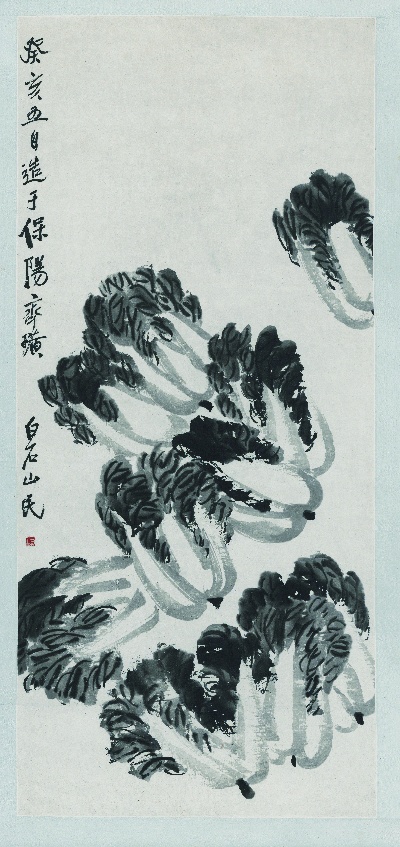 癸亥五月造于保陽齊璜
白石山民